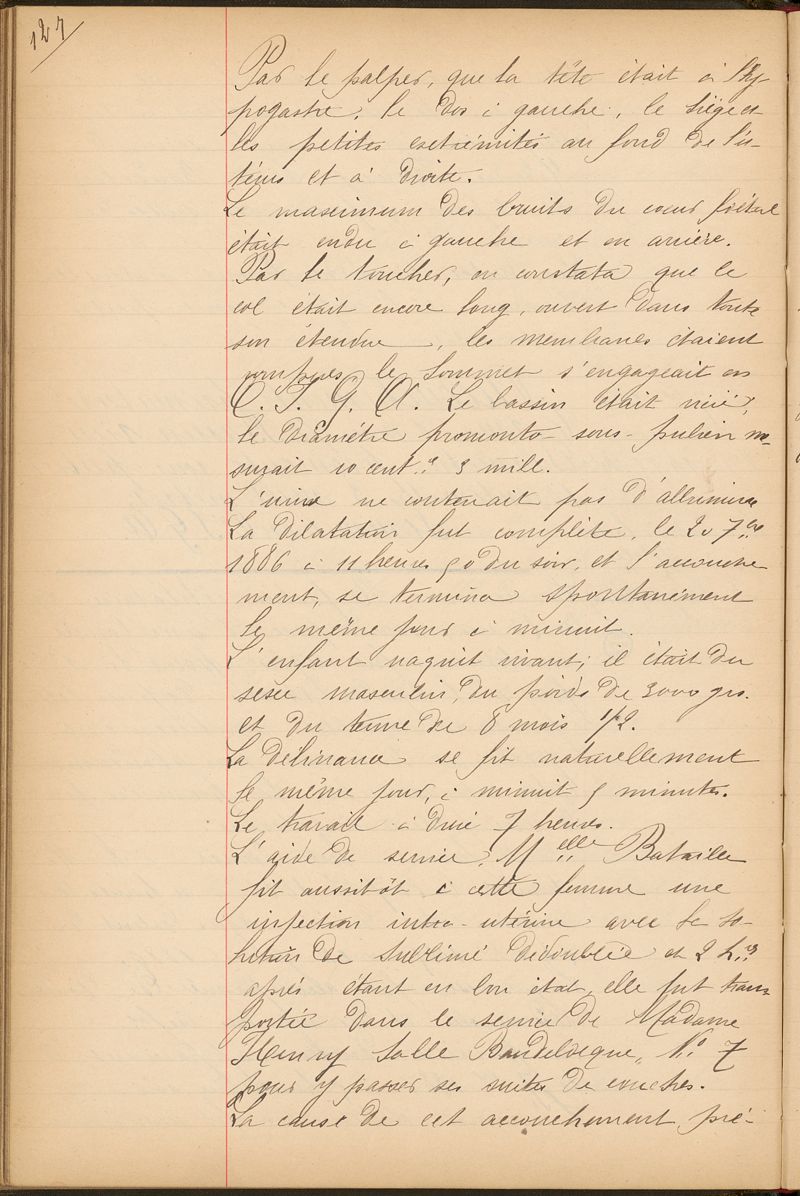 127
Par le palper, que la tête était à l'hy-
pogastre, le dos à gauche, le siège et
les petites extrémités au fond de l'u-
térus et à droite.
Le maximum des bruits du cœur fœtal
était endu à gauche et en arrière.
Par le toucher, on constata que le
col était encore long, ouvert dans toute
son étendue, les membranes étaient
rompues le sommet s'engageait en
O. I. G. A. Le bassin était vicié,
le diamètre promonto-sous-pubien me-
surait 10 cent.es 3 mill.
L'urine ne contenait pas d'albumine
La dilatation fut complète, le 20 7bre
1886 à 11 heures 50 du soir, et l'accouche
ment, se termina spontanément
le même jour à minuit.
L'enfant naquit vivant; il était du
sexe masculin, du poids de 3000 grs.
et du terme de 8 mois 1/2.
La délivrance se fit naturellement
le même jour, à minuit 5 minutes.
Le travail à duré 7 heures.
L'aide de service, Melle Bataille
fit aussitôt à cette femme une
injection intra-utérine avec la so-
lution de sublimé dédoublée et 2 h.es
après étant en bon état, elle fut trans
portée dans le service de Madame
Henry Salle Baudelocque, No 7
pour y passer ses suites de couches.
La cause de cet accouchement pré-